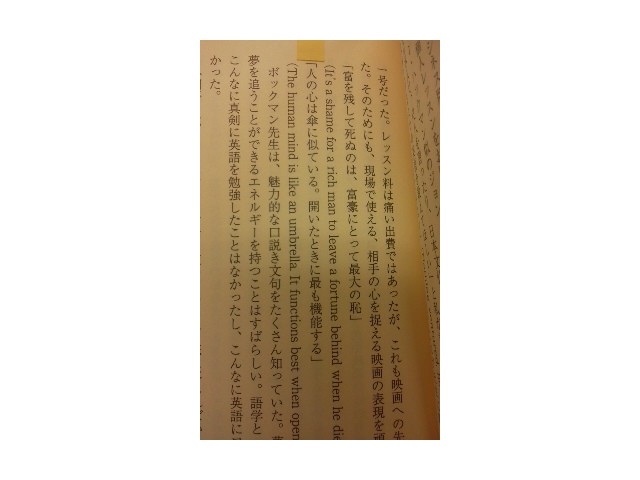 一号だった。レッスン料は痛い出費ではあったが、これも映画への先
た。そのためにも、現場で使える、相手の心を捉える映画の表現を頑
「富を残して死ぬのは、富豪にとって最大の恥」
(It's a shame for a rich man to leave a fortune behind when he die
「人の心は傘に似ている。開いたときに最も機能する」
(The human mind is like an umbrella. It functions best when open
ボックマン先生は、魅力的な口説き文句をたくさん知っていた。
夢を追うことができるエネルギーを持つことはすばらしい。語学と
こんなに真剣に英語を勉強したことはなかったし、こんなに英語に
かった。